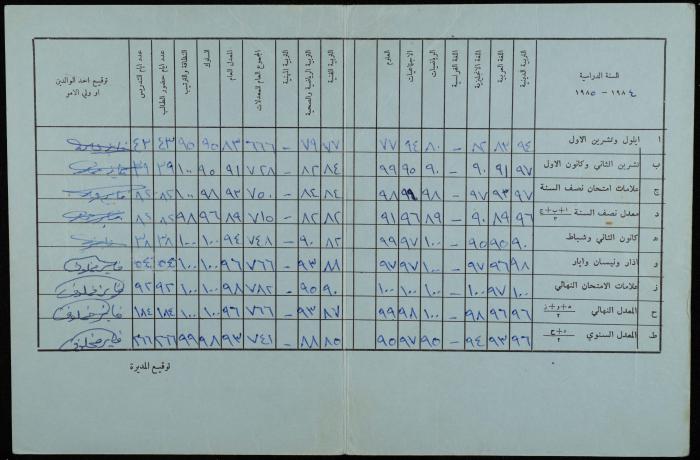 السنة الدراسية ١٩٨٤ - ١٩٨٥ | التربية الدينية | اللغة العربية | اللغة الانجليزية | اللغة الفرنسية | الرياضيات | الاجتماعيات | العلوم | التربية الفنية | التربية الرياضية والصحية | التربية المهنية | المجموع العام للمعدلات | المعدل العام | السلوك | النظافة والترتيب | عدد ايام حضور الطالب | عدد ايام التدريس | توقيع احد الوالدين او ولي الامر
ا ايلول وتشرين الاول ٩٤ ٨٣ ٨٢ - ٨٠ ٩٤ ٧٧ ٧٧ ٧٩ - ٦٦٦ ٨٣ ٩٥ ٩٥ ٤٣ ٤٣
ب تشرين الثاني وكانون الاول ٩٧ ٩١ ٩٠ - ٩٠ ٩٥ ٩٩ ٨٤ ٨٢ - ٧٢٨ ٩١ ٩٥ ١٠٠ ٣٩ ٣٩
ج علامات امتحان نصف السنة ٩٧ ٩٣ ٩٧ - ٩٨ ٩٩ ٩٨ ٨٤ ٨٤ - ٧٥٠ ٩٣ ٩٨ ١٠٠ ٨٢ ٨٢
د معدل نصف السنة ا+ب+ج / ٣ ٩٦ ٨٩ ٩٠ - ٨٩ ٩٦ ٩١ ٨٢ ٨٢ - ٧١٥ ٨٩ ٩٦ ٩٨ ٨٢ ٨٢
ه كانون الثاني وشباط ٩٠ ٩٥ ٩٥ - ١٠٠ ٩٧ ٩٩ ٨٢ ٩٠ - ٧٤٨ ٩٤ ١٠٠ ١٠٠ ٣٨ ٣٨
و اذار ونيسان وايار ٩٨ ٩٦ ٩٧ - ١٠٠ ٩٧ ٩٧ ٨٨ ٩٣ - ٧٦٦ ٩٦ ١٠٠ ١٠٠ ٥٤ ٥٤
ز علامات الامتحان النهائي ١٠٠ ٩٧ ١٠٠ - ١٠٠ ١٠٠ ١٠٠ ٩٠ ٩٥ - ٧٨٢ ٩٨ ١٠٠ ١٠٠ ٩٢ ٩٢
ح المعدل النهائي ه+و+ز / ٣ ٩٦ ٩٦ ٩٨ - ١٠٠ ٩٨ ٩٩ ٨٧ ٩٣ - ٧٦٦ ٩٦ ١٠٠ ١٠٠ ١٨٤ ١٨٤
ط المعدل السنوي د+ح / ٢ ٩٦ ٩٣ ٩٤ - ٩٥ ٩٧ ٩٥ ٨٥ ٨٨ - ٧٤١ ٩٣ ٩٨ ٩٩ ٢٦٦ ٢٦٦
توقيع المديرة